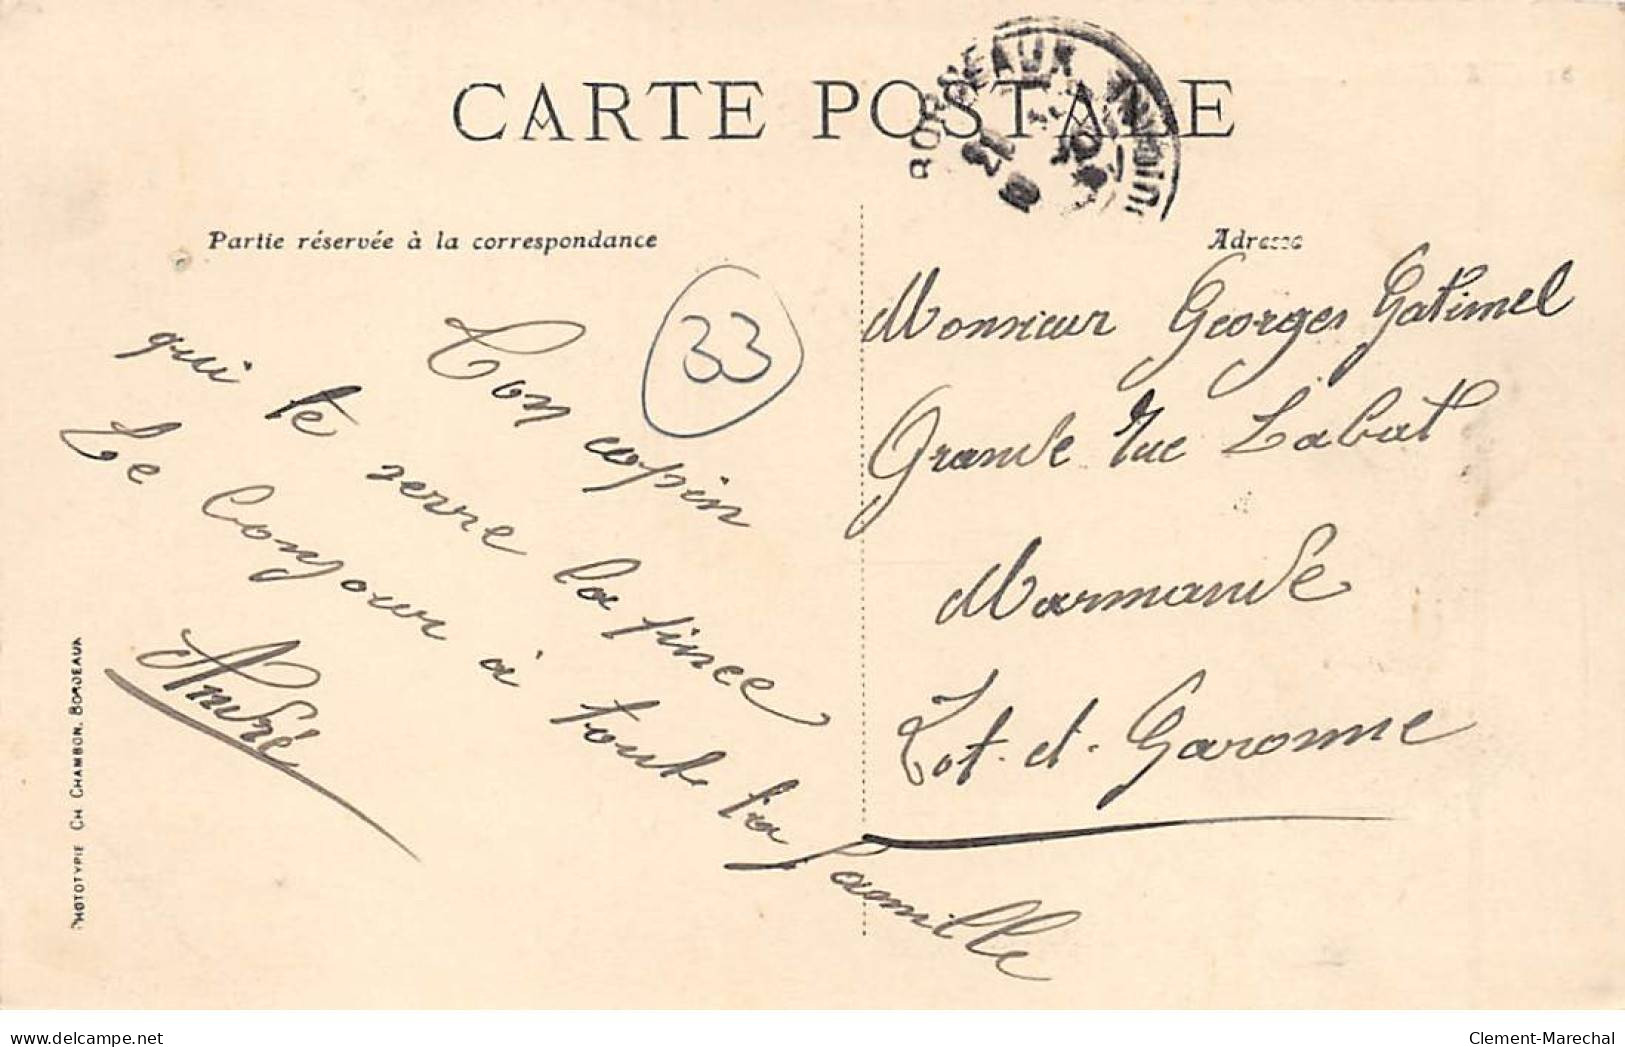 CARTE POSTALE
BORDEAUX
Partie réservée à la correspondance
Adresse
33
Ton copin
qui te serre la pince
Le bonjour à toute la famille
André
Monsieur Georges Gatimel
Grande rue Labat
Marmande
Lot-et-Garonne
PHOTOTYPIE CH. CHAMBON. BORDEAUX
www.delcampe.net
Clement-Marechal